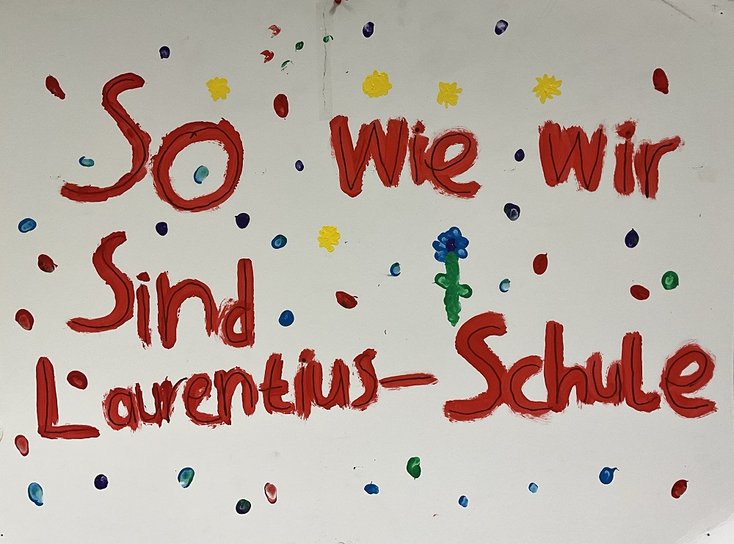 So wie wir
Sind
Laurentius-Schule